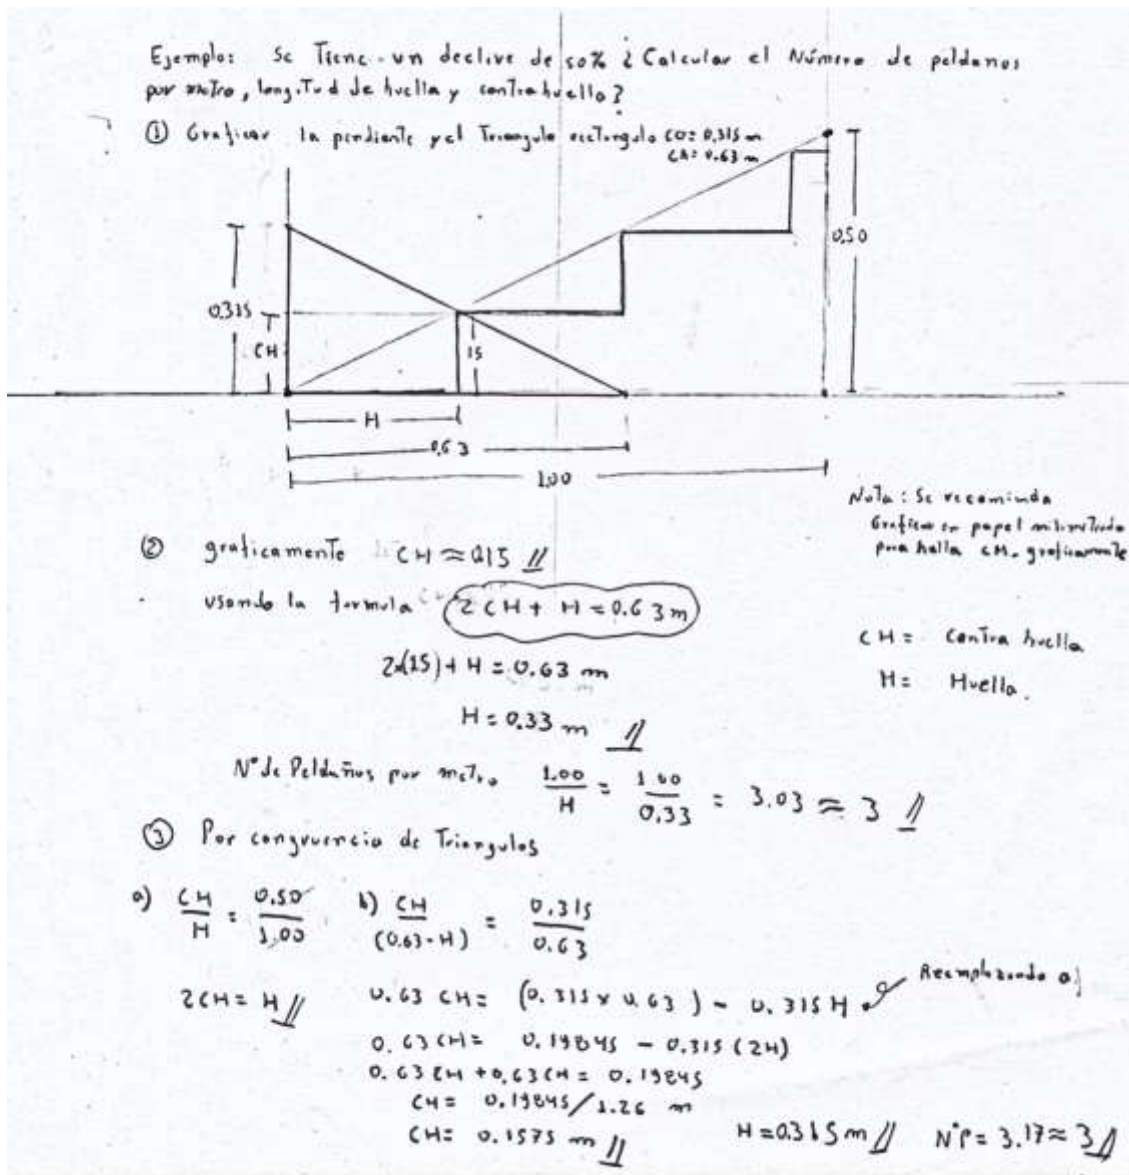 Ejemplo: Se Tiene un declive de 50% ¿ Calcular el Número de peldaños
por metro, longitud de huella y contrahuella?
① Graficar la pendiente y el Triangulo rectangulo CO= 0,315 m
CA= 0.63 m
0.50
0.315
CH
15
H
0,63
1.00
Nota: Se recomienda
Graficar en papel milimetrado
para halla CH. graficamente
② graficamente CH ≈ 0.15 //
usando la formula 2CH + H = 0.63 m
CH = Contra huella
2x(15) + H = 0.63 m
H = Huella.
H = 0.33 m //
N° de Peldaños por metro 1.00/H = 1.00/0.33 = 3.03 ≈ 3 //
③ Por congruencia de Triangulos
a) CH/H = 0.50/1.00 b) CH/(0.63-H) = 0.315/0.63
Reemplazando a)
2CH = H // 0.63 CH = (0.315 x 0.63) - 0.315 H
0.63 CH = 0.19845 - 0.315 (2H)
0.63 CH + 0.63 CH = 0.19845
CH = 0.19845/1.26 m
CH = 0.1575 m // H = 0.315 m // N°P = 3.17 ≈ 3 //